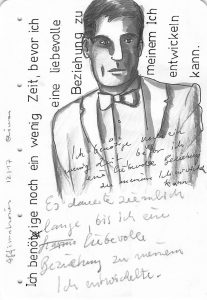 Ich benötige noch ein wenig Zeit, bevor ich
eine liebevolle
Beziehung zu
meinem Ich
entwickeln
kann.
Affirmationen 12/17
Ich benötige noch ein
wenig Zeit, bevor ich
eine liebevolle Beziehung
zu meinem Ich entwickeln
kann.
Es dauerte ziemlich
lange bis ich eine
liebevolle
Beziehung zu meinem
Ich entwickelte.